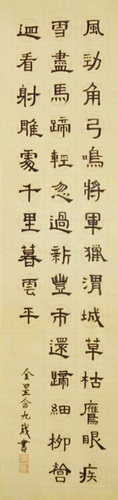 風勁角弓鳴將軍獵渭城草枯鷹眼疾
雪盡馬蹄輕忽過新豐市還歸細柳營
迴看射雕處千里暮雲平
金 九歲書